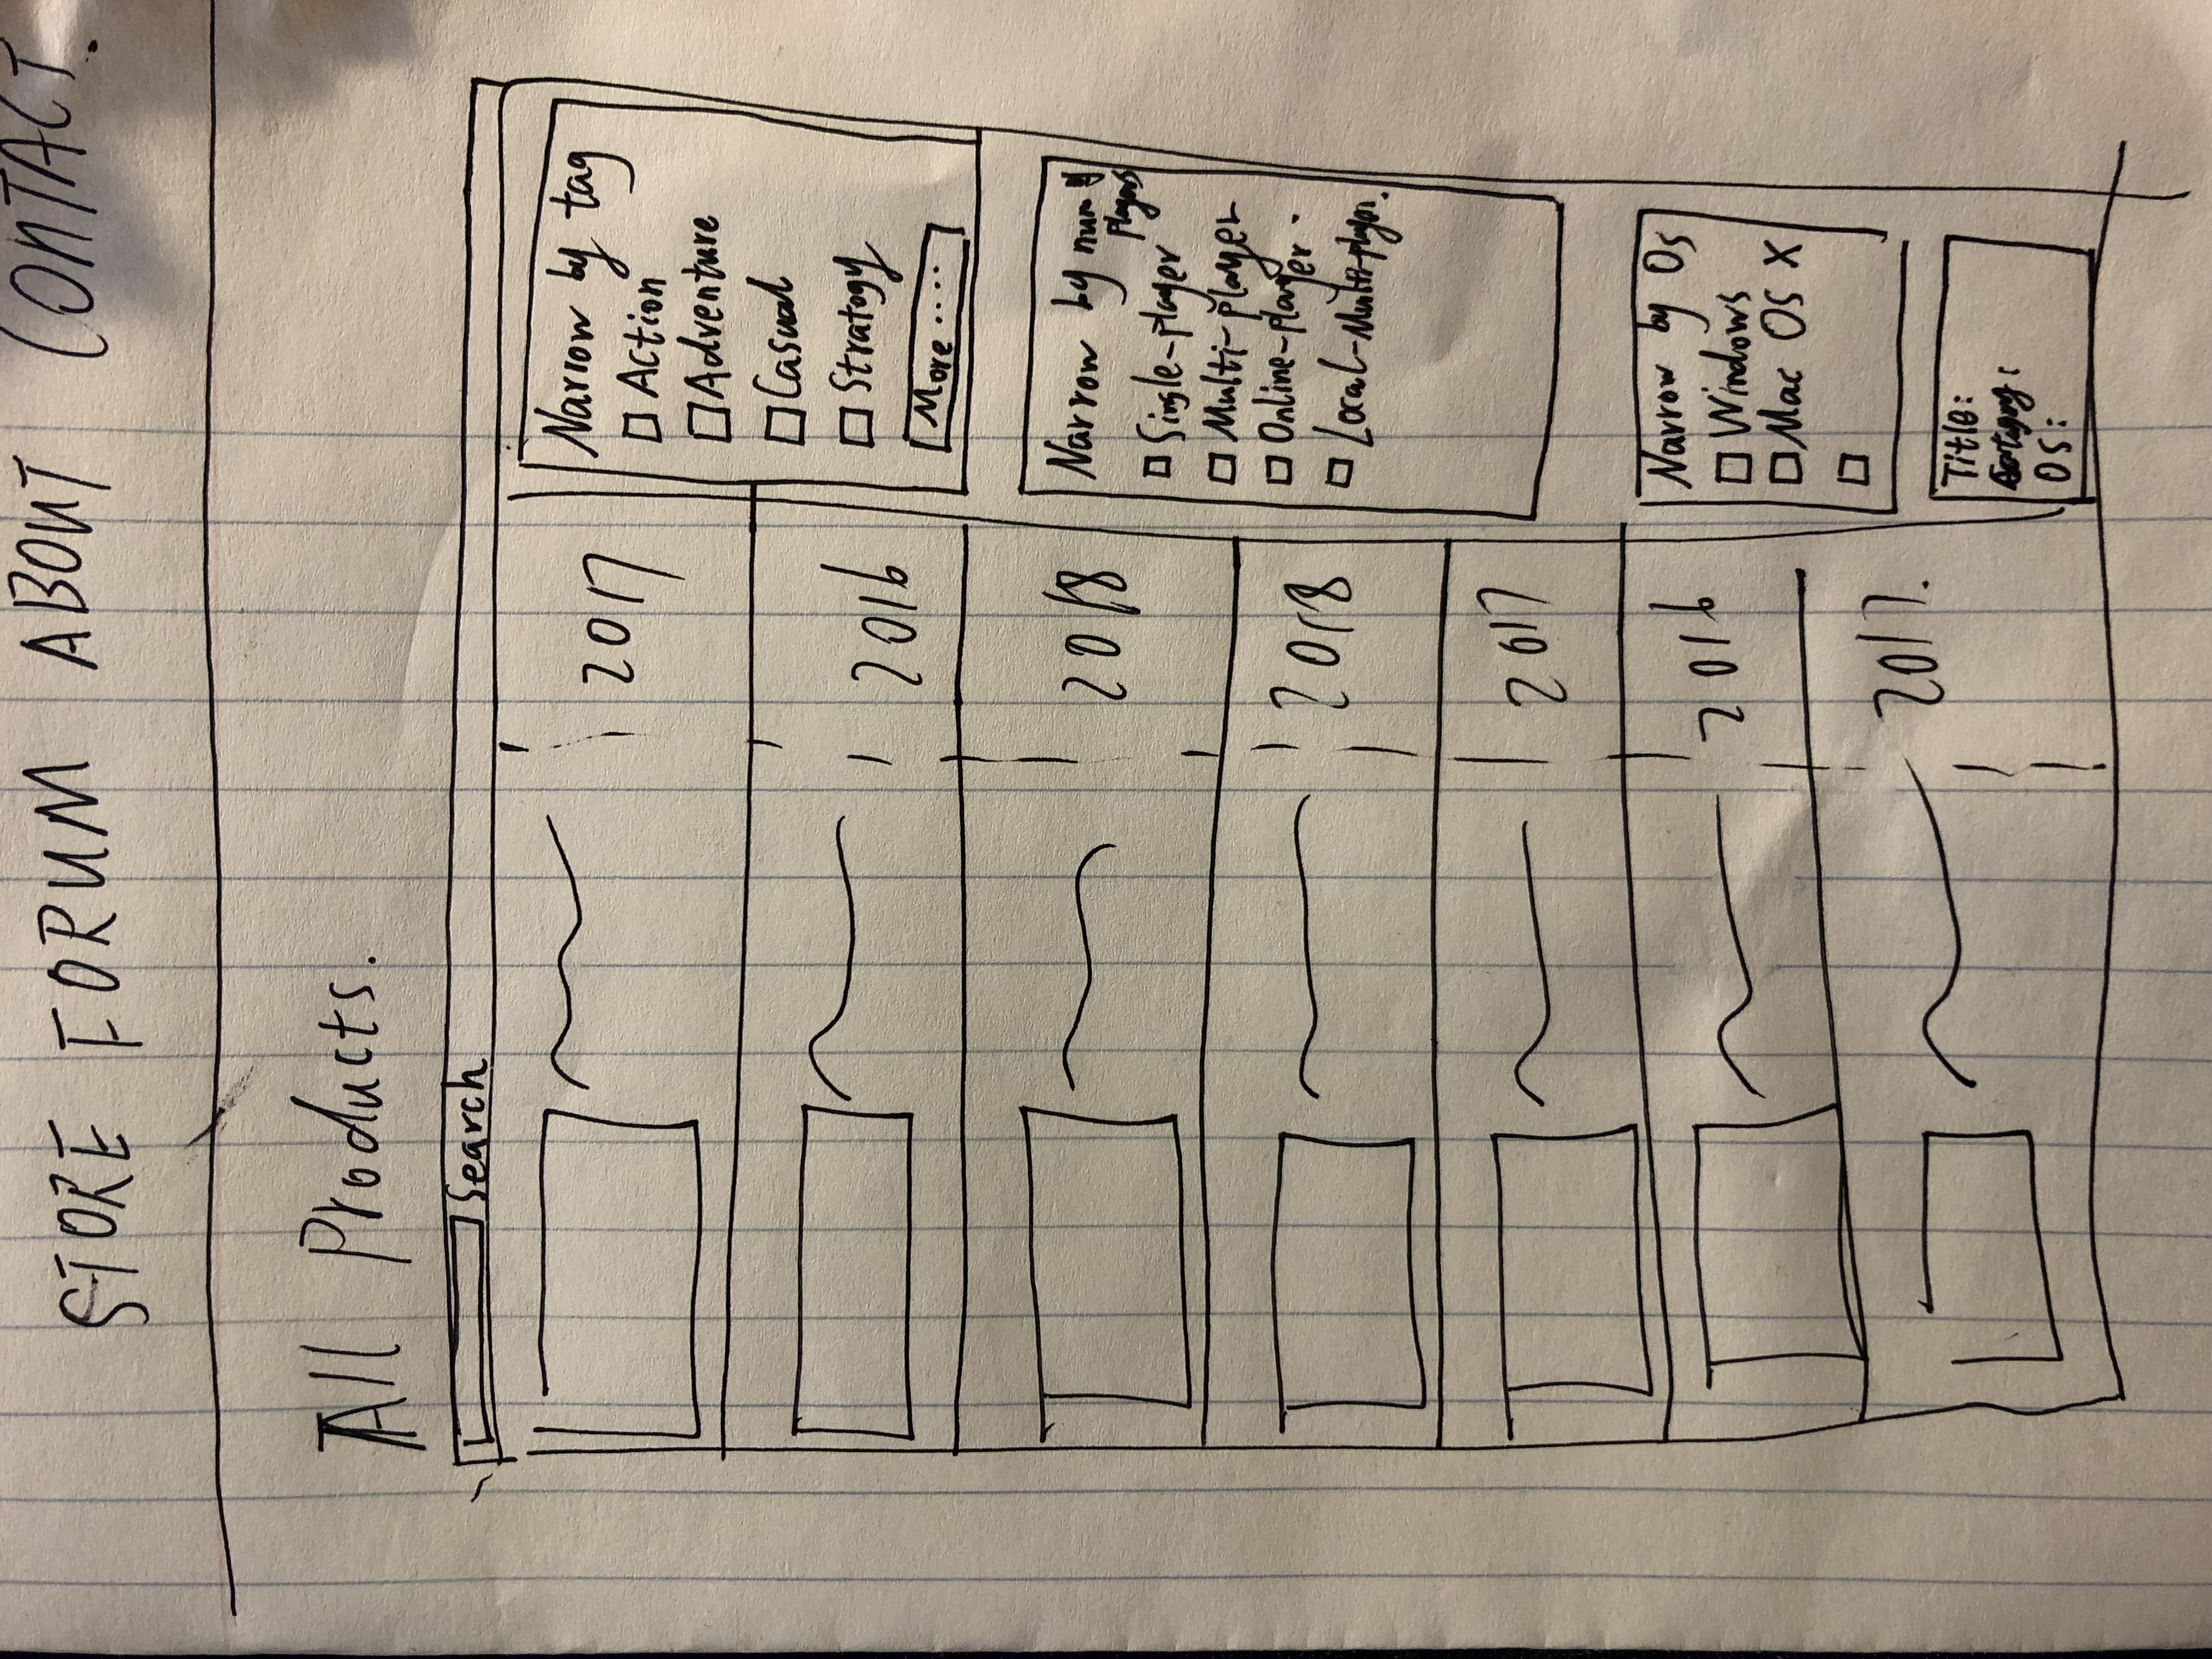 STORE FORUM ABOUT CONTACT.
All Products.
Search
2017
2016
2018
2018
2017
2016
2017.
Narrow by tag
Action
Adventure
Casual
Stratogy
More ....
Narrow by num
players
Single-player
Multi-player
Online-player.
Local-Multi-player.
Narrow by Os
Windows
Mac OS X
Title:
OS: